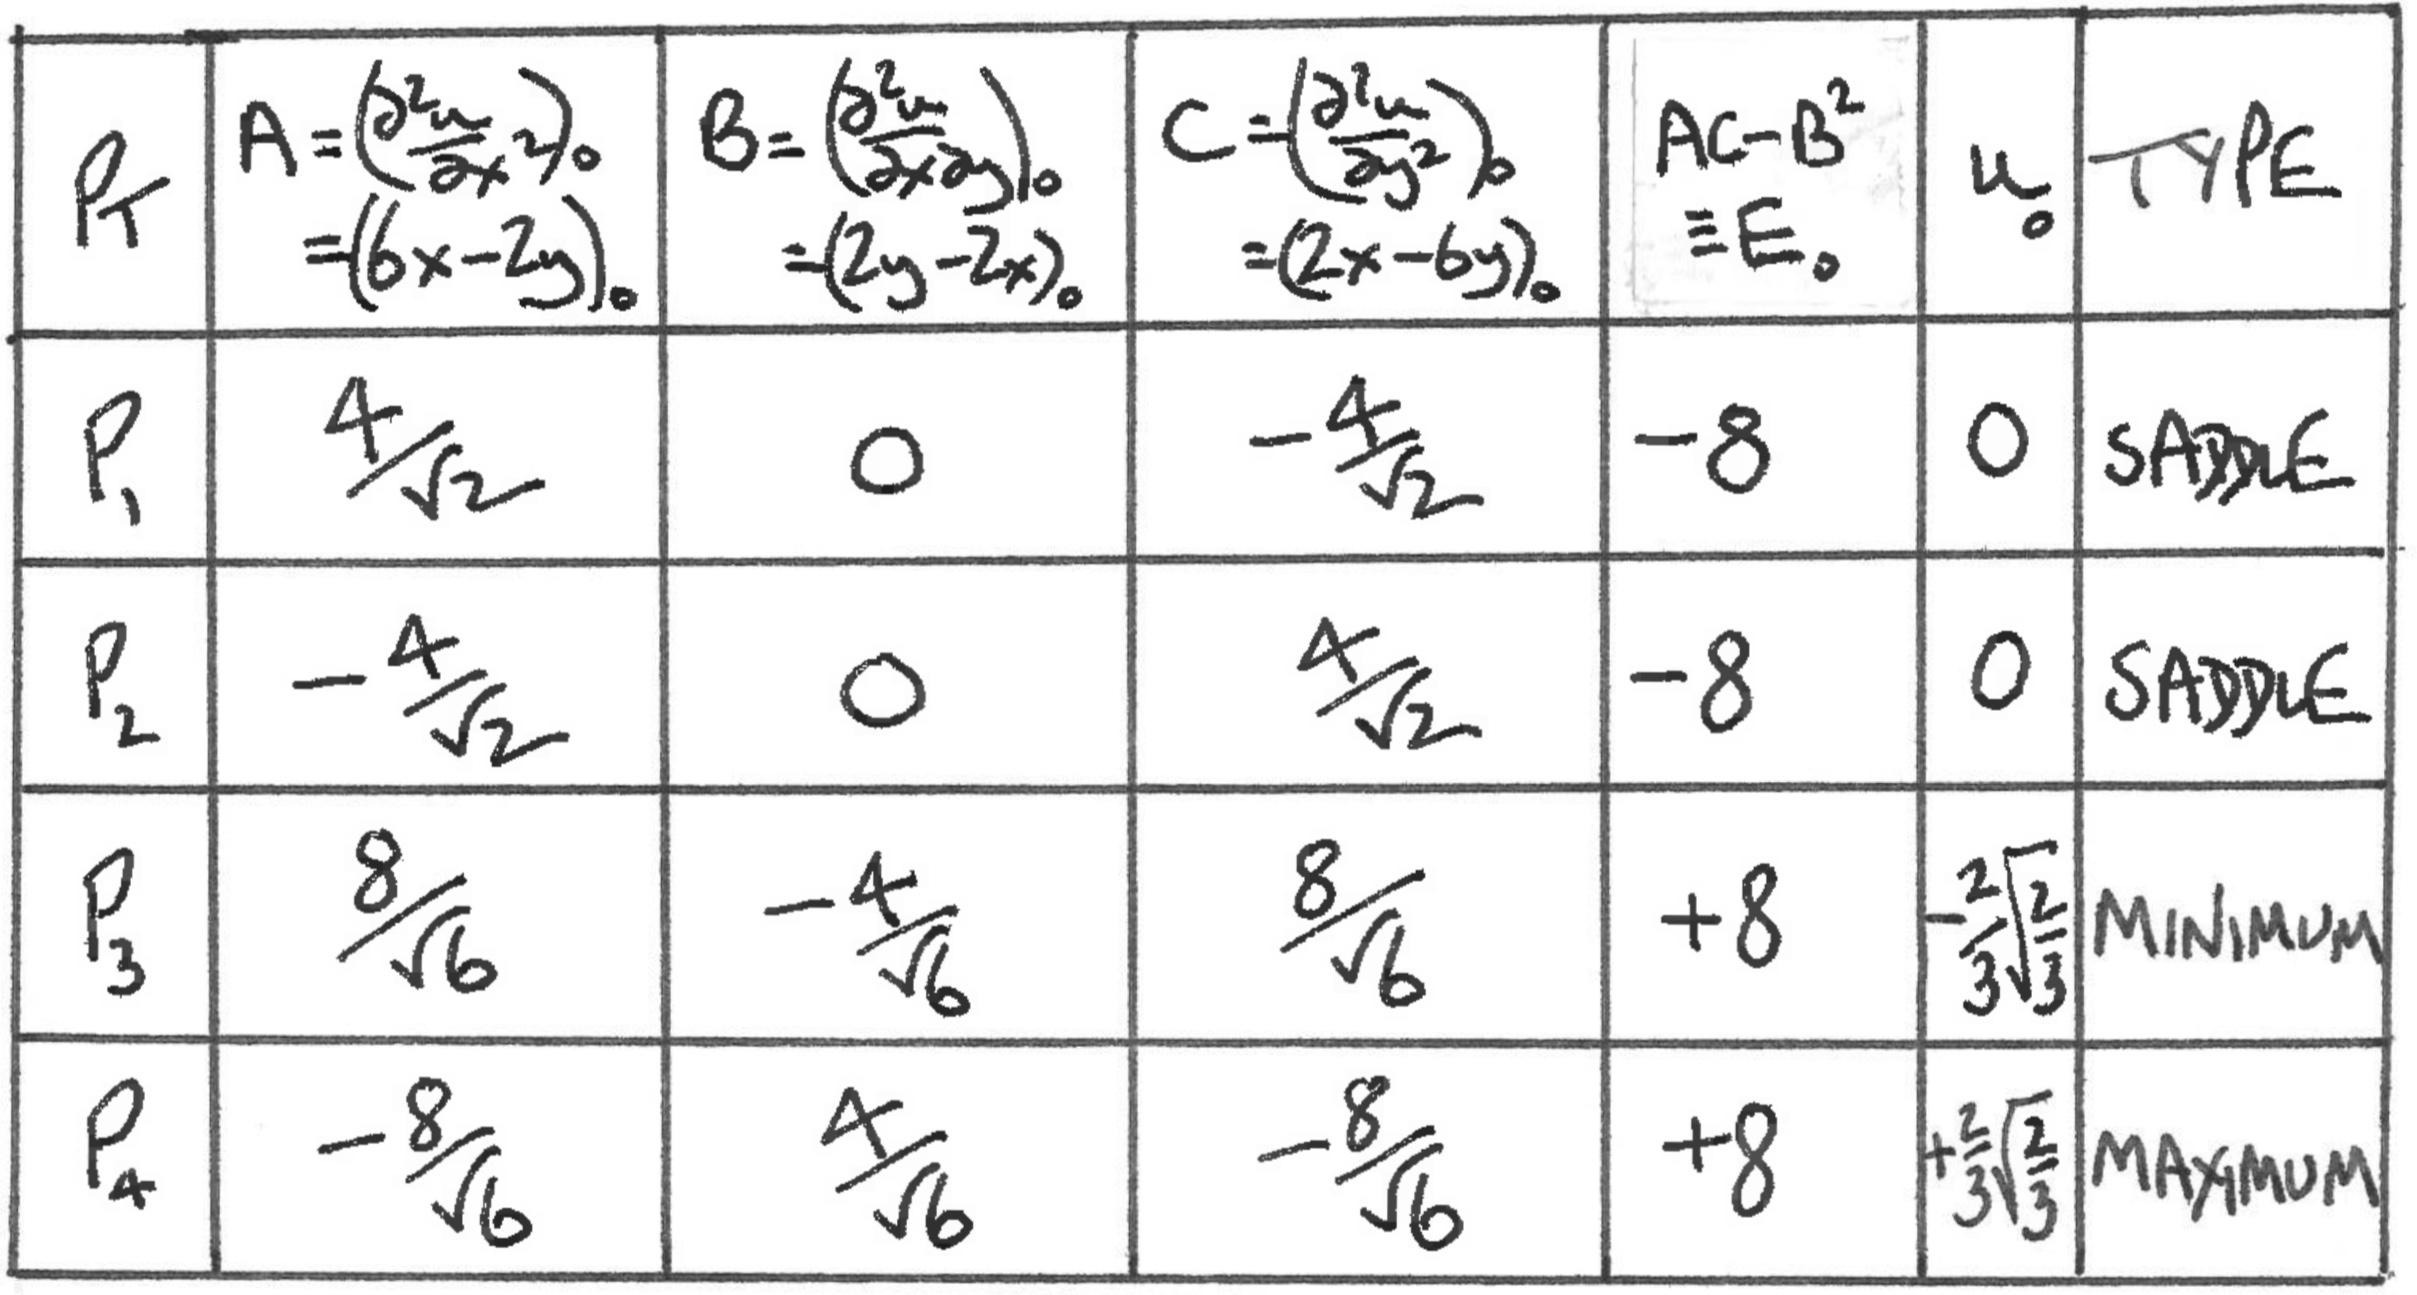 PT A = (∂²u/∂x²)₀ = (6x-2y)₀ B = (∂²u/∂x∂y)₀ = (2y-2x)₀ C = (∂²u/∂y²)₀ = (2x-6y)₀ AC-B² ≡ E₀ u₀ TYPE
P₁ 4/√2 0 -4/√2 -8 0 SADDLE
P₂ -4/√2 0 4/√2 -8 0 SADDLE
P₃ 8/√6 -4/√6 8/√6 +8 -2/3√(2/3) MINIMUM
P₄ -8/√6 4/√6 -8/√6 +8 +2/3√(2/3) MAXIMUM